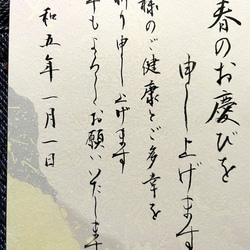 春のお慶びを
申し上げます
様のご健康とご多幸を
祈り申し上げます
年もよろしくお願いいたします
和五年 一月一日